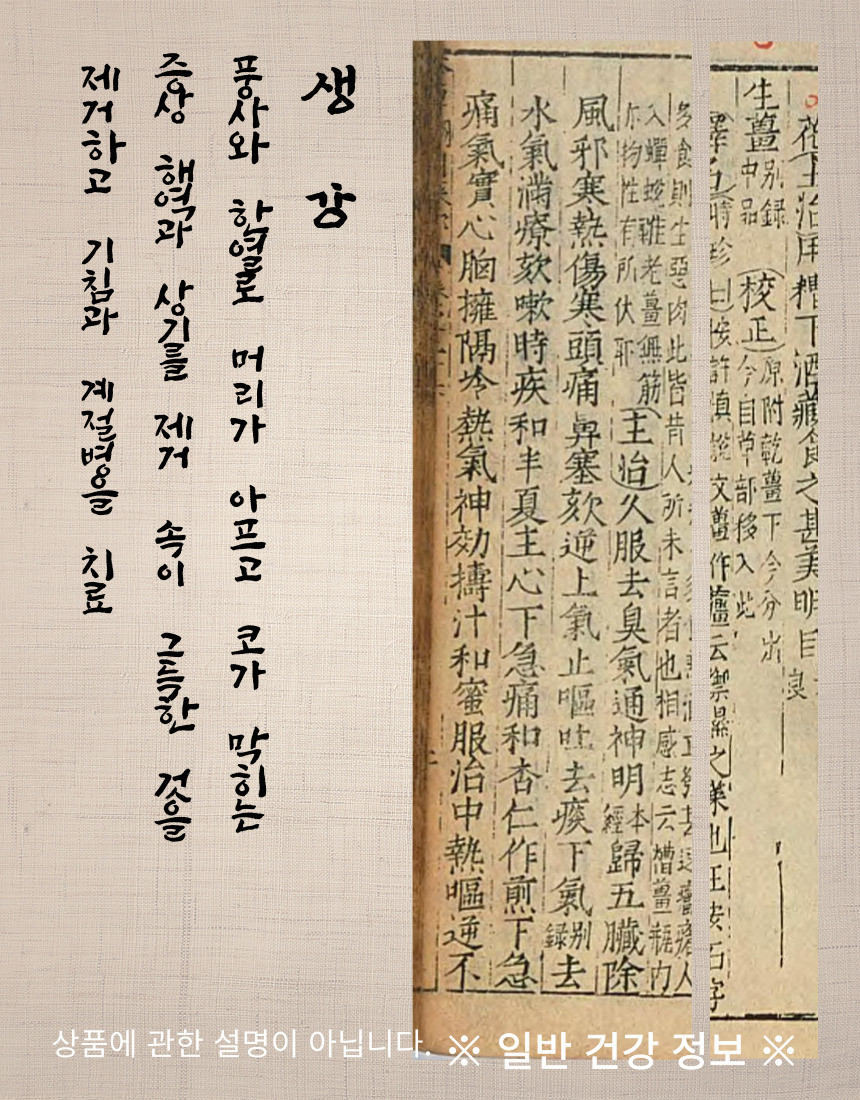 生薑 別錄中品 校正 原附乾薑下今分出今自草部移入此
釋名 時珍曰按許慎說文薑作䕬云禦濕之菜也王安石字
多食則生惡肉此皆昔人所未言者也相感志云糟薑瓶內
入蟬蛻雖老薑無筋亦物性有所伏耶 主治 久服去臭氣通神明本經歸五臟除
風邪寒熱傷寒頭痛鼻塞欬逆上氣止嘔吐去痰下氣別錄去
水氣滿療欬嗽時疾和半夏主心下急痛和杏仁作煎下急
痛氣實心胸擁隔冷熱氣神効擣汁和蜜服治中熱嘔逆不
생 강
풍사와 한열로 머리가 아프고 코가 막히는
증상 해역과 상기를 제거 속이 그득한 것을
제거하고 기침과 계절병을 치료
상품에 관한 설명이 아닙니다. ※ 일반 건강 정보 ※